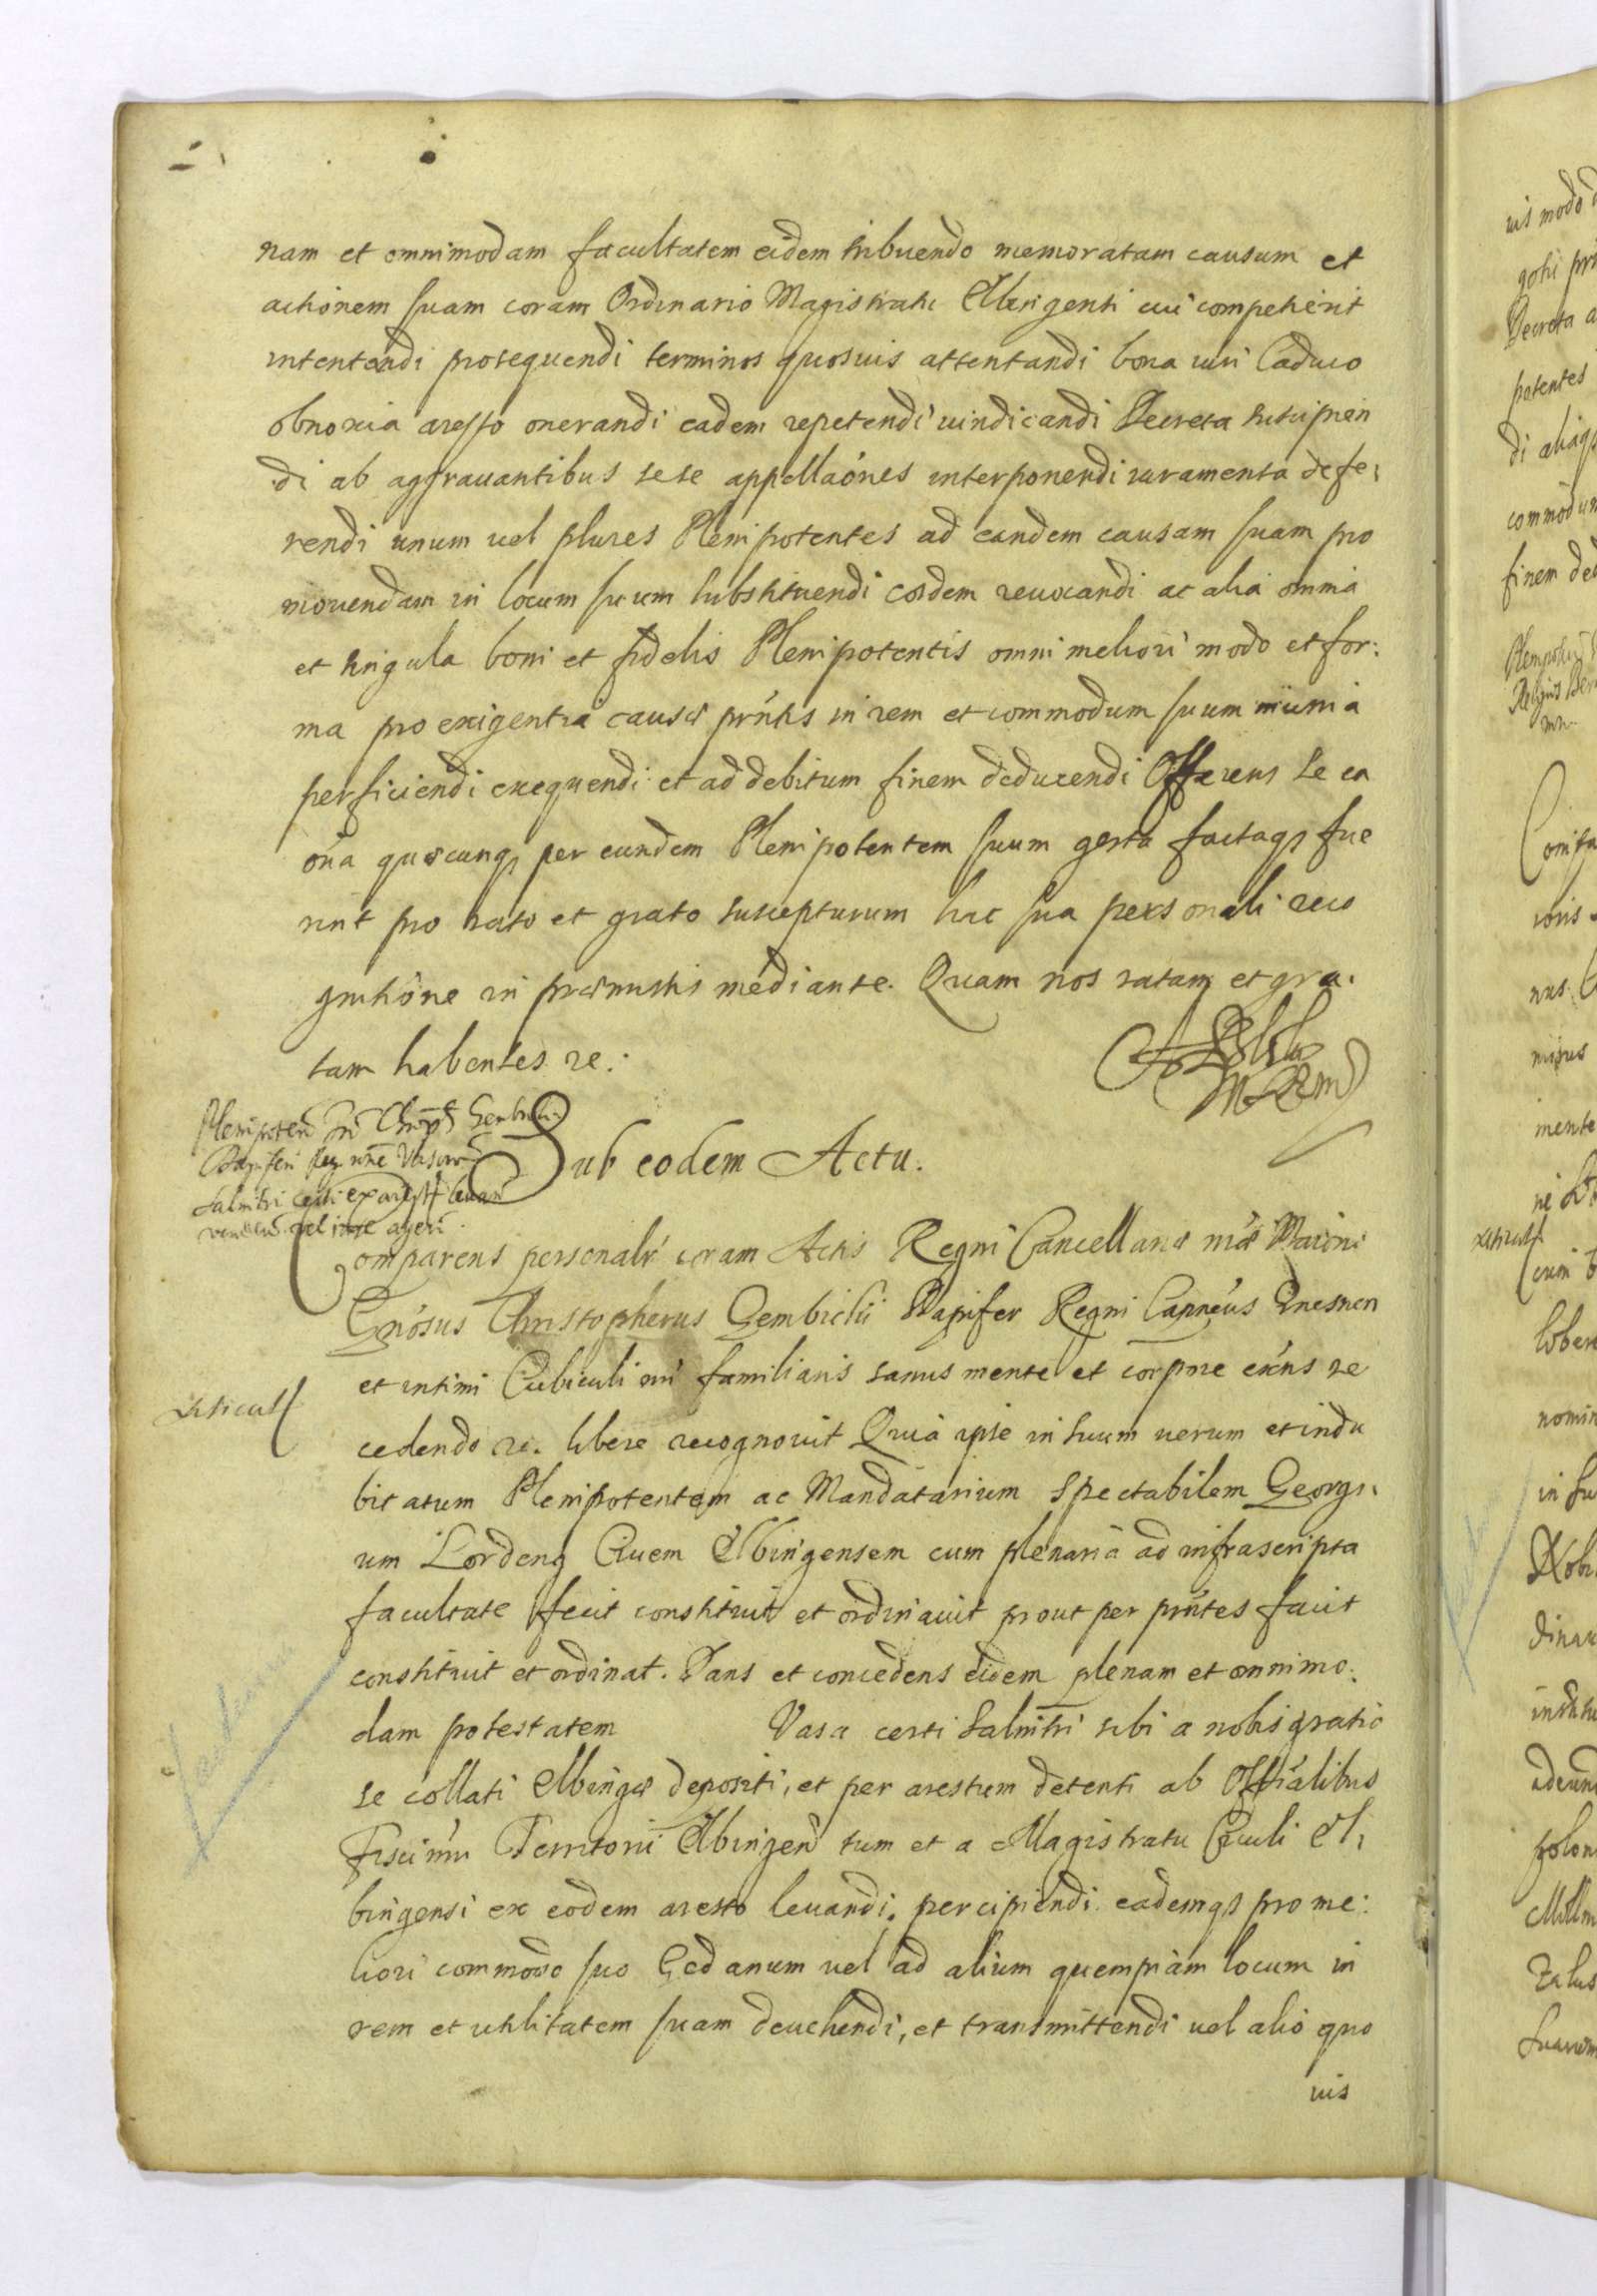 nam et omnimodam facultatem eidem tribuendo memoratam causam et
actionem suam coram Ordinario Magistratu Elbingensi cui competierit
intentandi prosequendi terminos quosuis attentandi bona iuri Caduco
obnoxia aresto onerandi eadem repetendi uindicandi Decreta suscipien
di ab aggrauantibus sese appellaónes interponendi iuramenta defe:
rendi unum uel plures Plenipotentes ad eandem causam suam pro
mouendam in locum suum substituendi eosdem reuocandi ac alia omnia
et singula boni et fidelis Plenipotentis omni meliori modo et for:
ma pro exigentia causæ prńtis in rem et commodum suum munia
perficiendi exequendi et ad debitum finem deducendi Offerens se ea
óńa quæcunq; per eundem Plenipotentem suum gesta factaq; fue
rint pro rato et grato suscepturum hac sua personali reco
gnitióne in præmissis mediante. Quam nos ratam et gra:
tam habentes ɾe:
Sub eodem Actu.
Comparens personalr̃ coram Actis Regni Cancellariæ miás Maioris
Gnósus Christopherus Gembicki Dapifer Regni Capneús Gnesnen
et intimi Cubiculi nri familiaris sanus mente et corpore exńs re
cedendo ɾe. libere recognouit Quia ipse in suum uerum et indu
bitatum Plenipotentem ac Mandatarium Spectabilem Georgi:
um Lordeng Ciuem Elbingensem cum plenaria ad infrascripta
facultate fecit constituit et ordinauit prout per prńtes facit
constituit et ordinat. Dans et concedens eidem plenam et omnimo:
dam potestatem Vasa certi Salnitri sibi a nobis gratio
se collati Elbingæ depositi, et per arestum detenti ab Offialibus
Fisci nri Territorii Elbingen tum et a Magistratu Ciuili El:
bingensi ex eodem aresto leuandi, percipiendi eademq; pro me:
liori commodo suo Gedanum uel ad alium quempiam locum in
rem et utilitatem suam deuehendi, et transmittendi uel alio quo
uis